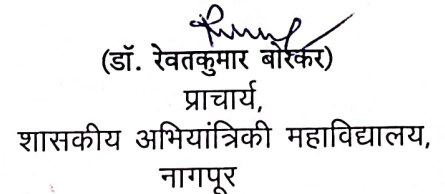 (डॉ. रेवतकुमार बोरकर)
प्राचार्य,
शासकीय अभियांत्रिकी महाविद्यालय,
नागपूर